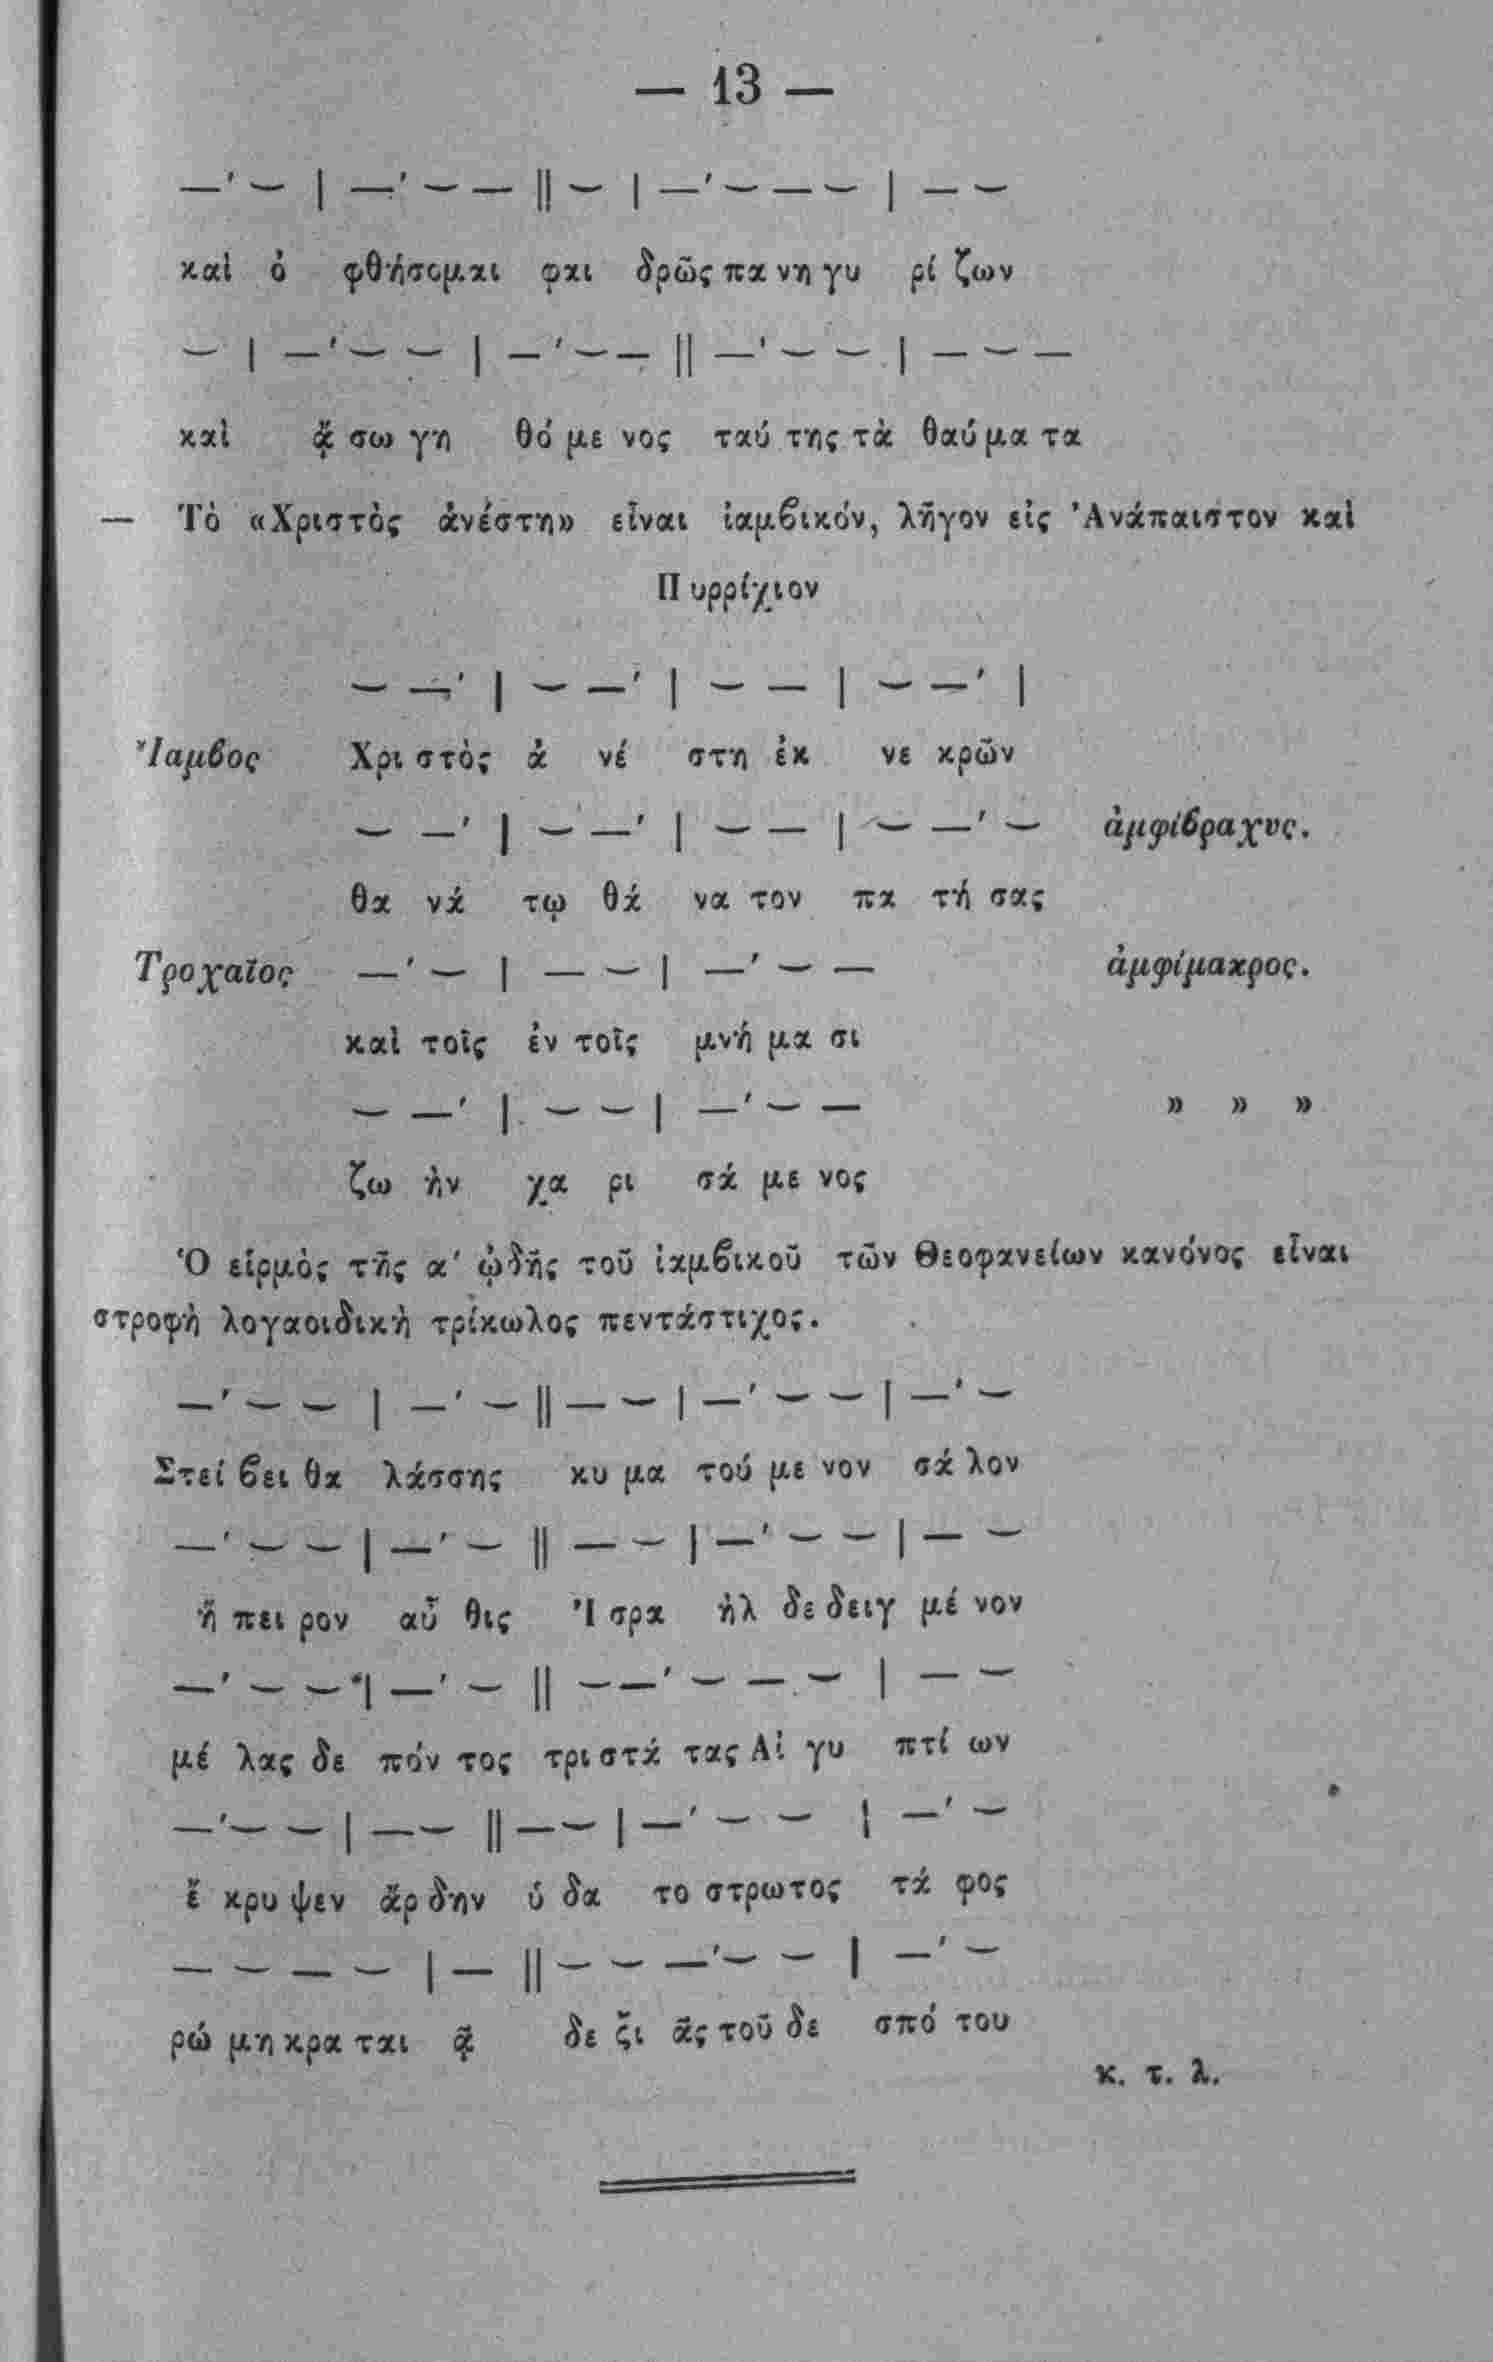 — 13 —
—′ ⏑ | —′ ⏑ — || ⏑ | —′ ⏑ — ⏑ | — ⏑
καὶ ὀ φθήσομαι φαι δρῶς πα νη γυ ρί ζων
⏑ | —′ ⏑ ⏑ | —′ ⏑ — || —′ ⏑ ⏑ | — ⏑ —
καὶ ᾄ σω γη θό με νος ταύ της τὰ θαύ μα τα
— Τὸ «Χριστὸς ἀνέστη» εἶναι ἰαμϐικόν, λῆγον εἰς Ἀνάπαιστον καὶ
Πυρρίχιον
⏑ —′ | ⏑ —′ | ⏑ — | ⏑ —′ |
Ἴαμϐος Χρι στὸς ἀ νέ στη ἐκ νε κρῶν
⏑ —′ | ⏑ —′ | ⏑ — | ⏑ —′ ⏑ ἀμφίϐραχυς.
θα νά τῳ θά να τον πα τή σας
Τροχαῖος —′ ⏑ | — ⏑ | —′ ⏑ — ἀμφίμακρος.
καὶ τοῖς ἐν τοῖς μνή μα σι
⏑ —′ | ⏑ ⏑ | —′ ⏑ — » » »
ζω ὴν χα ρι σά με νος
Ὁ εἱρμὸς τῆς α′ ᾠδῆς τοῦ ἰαμϐικοῦ τῶν Θεοφανείων κανόνος εἶναι
στροφὴ λογαοιδικὴ τρίκωλος πεντάστιχος.
—′ ⏑ ⏑ | —′ ⏑ || — ⏑ | —′ ⏑ ⏑ | —′ ⏑
Στεί ϐει θα λάσσης κυ μα τού με νον σά λον
—′ ⏑ ⏑ | —′ ⏑ || — ⏑ | —′ ⏑ ⏑ | — ⏑
ἤ πει ρον αὖ θις Ἰ σρα ὴλ δε δειγ μέ νον
—′ ⏑ ⏑ | —′ ⏑ || ⏑ —′ ⏑ — ⏑ | — ⏑
μέ λας δε πόν τος τρι στά τας Αἰ γυ πτί ων
—′ ⏑ ⏑ | — ⏑ || — ⏑ | —′ ⏑ ⏑ | —′ ⏑
ἔ κρυ ψεν ἄρ δην ὑ δα το στρωτος τά φος
— ⏑ — ⏑ | — || ⏑ ⏑ —′ ⏑ ⏑ | —′ ⏑
ρώ μη κρα ται ᾷ δε ξι ᾶς τοῦ δε σπό του
κ. τ. λ.